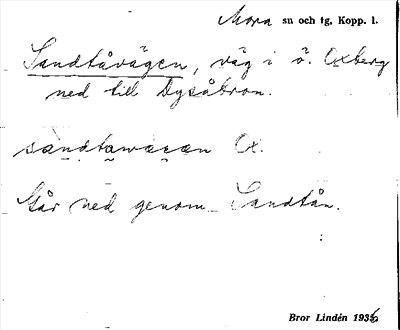 Mora sn och tg, Kopp. l.
Sandtåvägen, väg i ö. Oxberg
ned till Dysåbron.
sandtawægæn Ox.
Går ned genom Sandtån.
Bror Lindén 1936